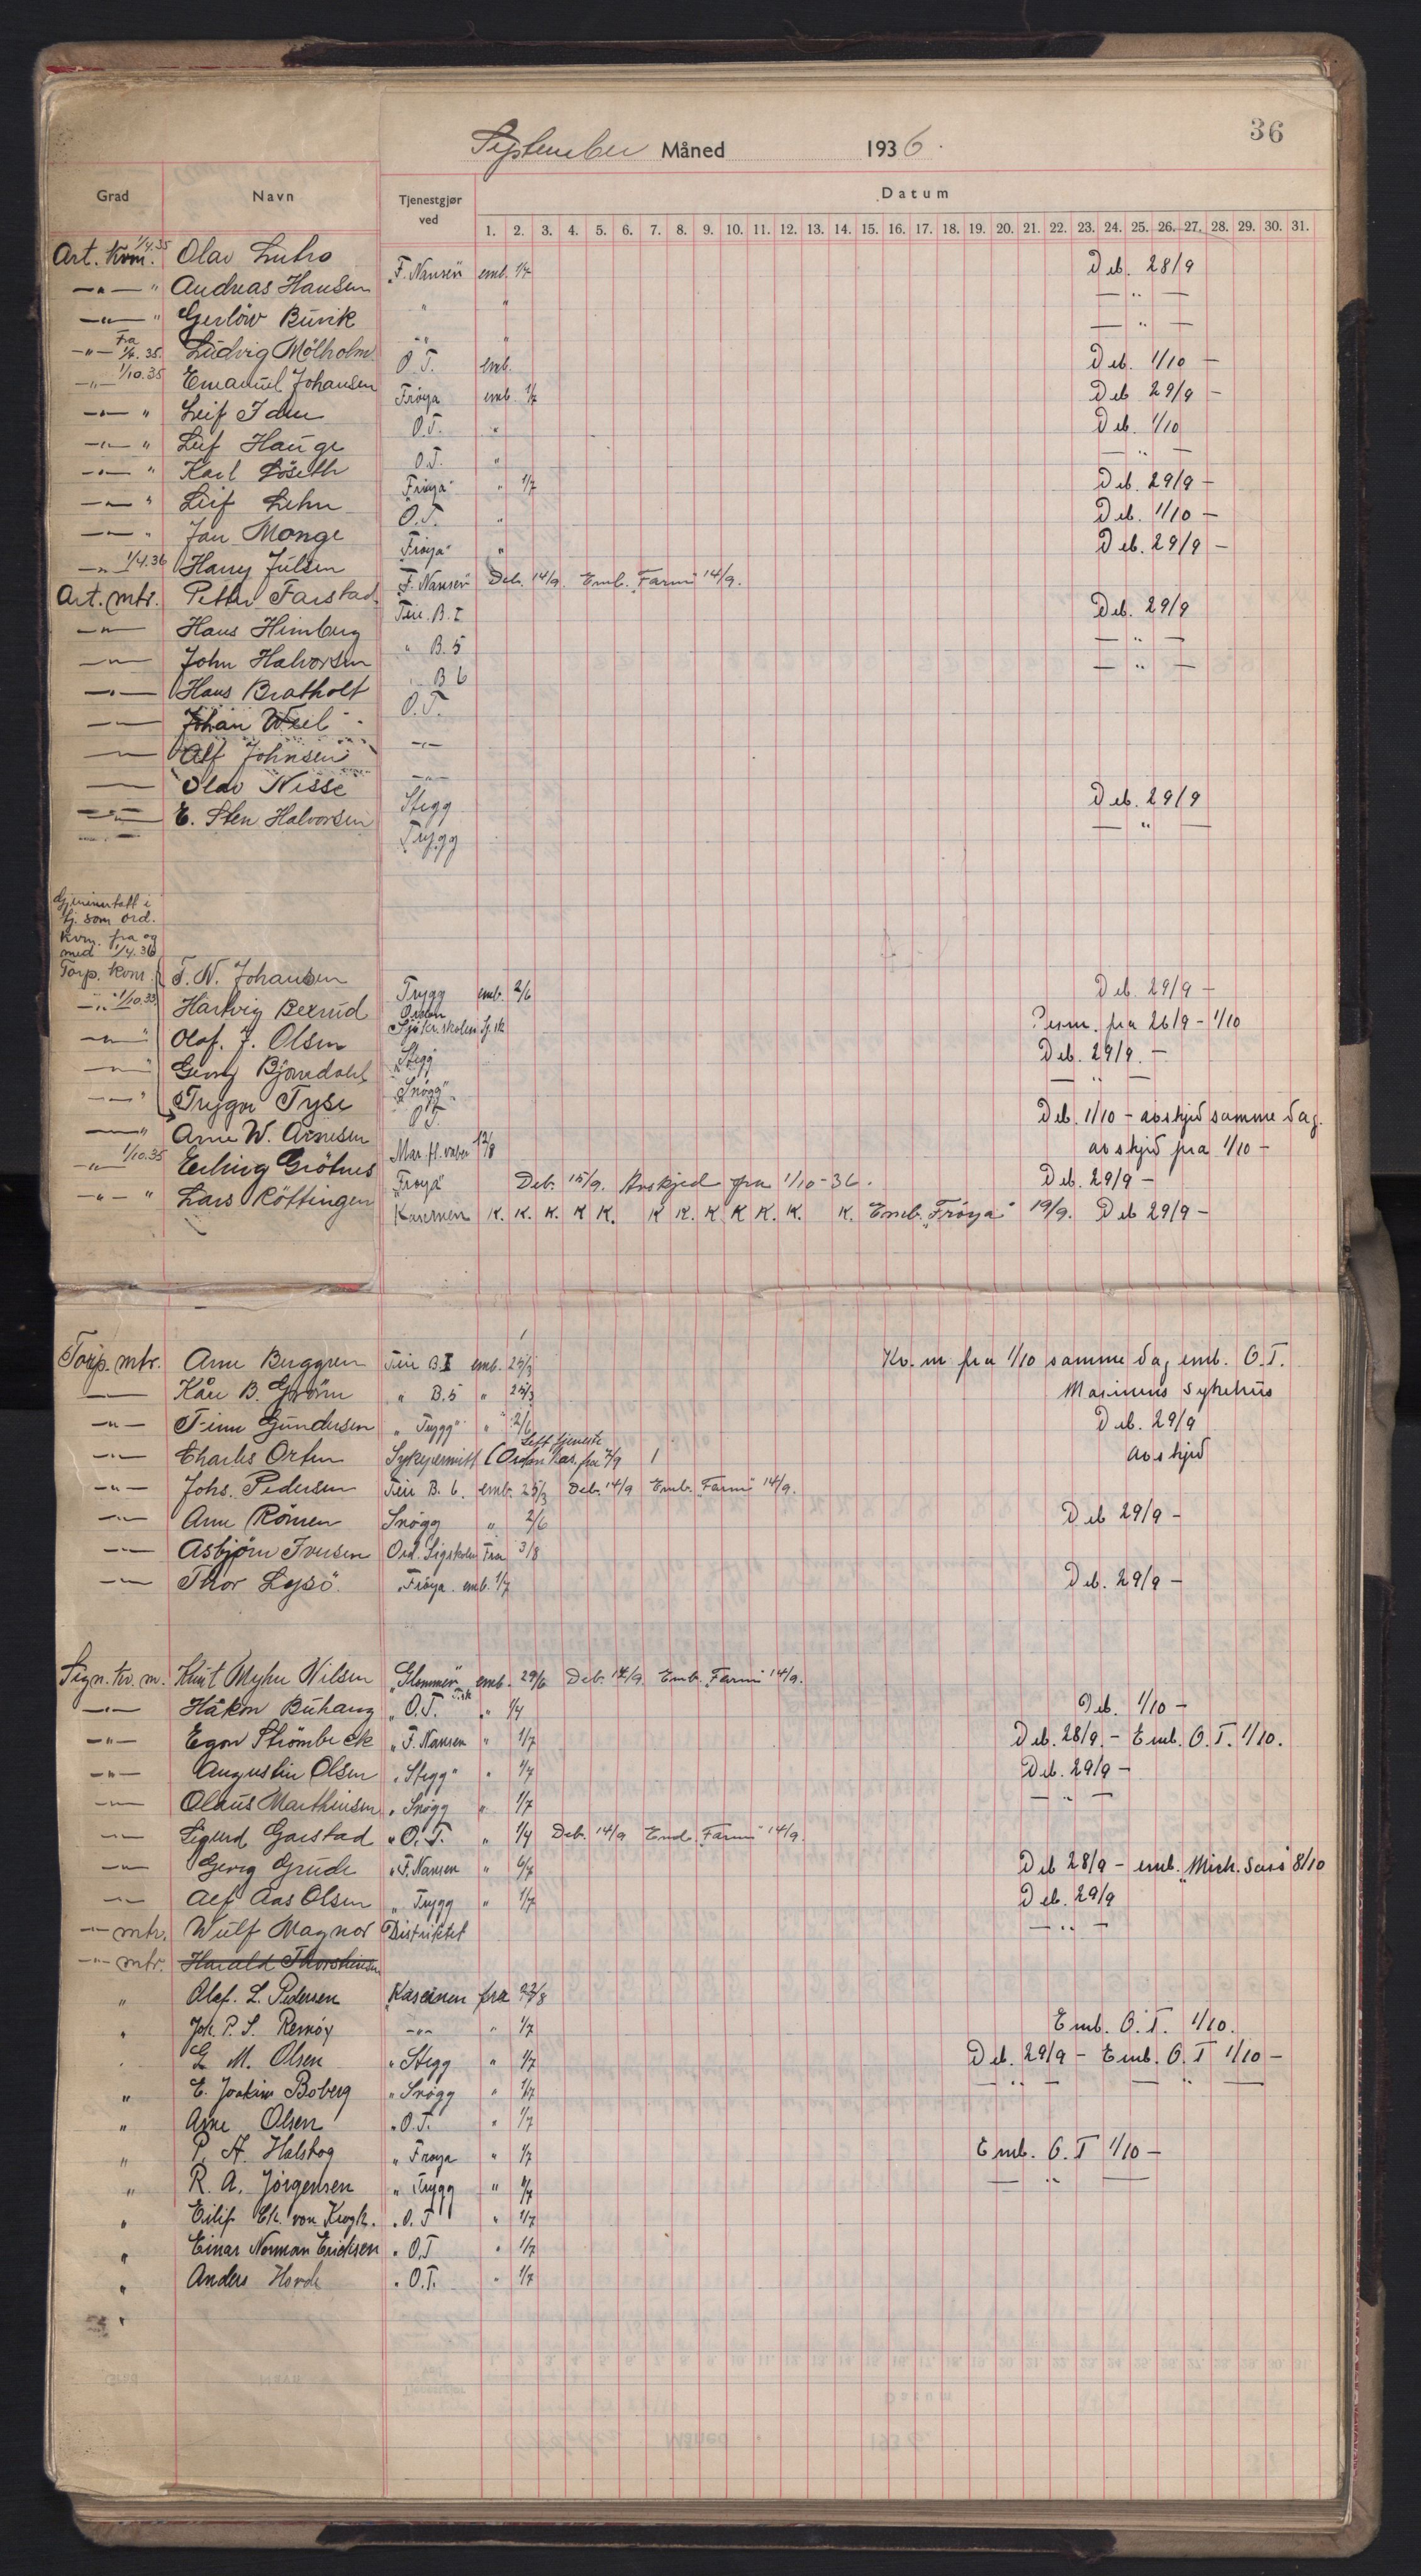 36
September Måned 1936.
Grad Navn Tjenestgjør ved Datum
1. 2. 3. 4. 5. 6. 7. 8. 9. 10. 11. 12. 13. 14. 15. 16. 17. 18. 19. 20. 21. 22. 23. 24. 25. 26. 27. 28. 29. 30. 31.
Art. kvm. 1/4.35 Olav „F. Nansen" emb. 1/7 Deb. 28/9
—"— " Andreas Hansen " " — " —
—"— " Gerlöw Burik " " — " —
—"— Fra 1/4.35. Ludvig Mölholm O.T. emb. Deb. 1/10 —
—"— 1/10.35 Emanuel Johansen Fröya emb. 1/7 Deb 29/9 —
—"— " Leif O.T. " Deb. 1/10
—"— " Leif Hauge O.T. " — " —
—"— " Karl Löseth „Fröya" " 1/7 Deb. 29/9 —
—"— " Leif Lehn O.T. " Deb. 1/10 —
—"— " Jan Monge „Fröya" " Deb. 29/9 —
—"— 1/4.36 Harry Julsen „F. Nansen" Deb. 14/9. Emb. „Farm" 14/9.
Art. mtr. Petter Farstad Teie. B. I Deb. 29/9
—"— Hans Himberg " B. 5 — " —
—"— John Halvorsen " B 6 — " —
—"— Hans Bratholt O.T.
—"— Johan Weel —"—
—"— Alf Johnsen —"—
—"— Olav Nisse Stegg Deb. 29/9
—"— E. Sten Halvorsen Trygg — " —
Gjeninntatt i
tj. som ord.
kvm. fra og
med 1/4.36
Torp. kvm. T. N. Johansen Trygg emb. 2/6 Deb. 29/9 —
—"— 1/10.35 Hartvig Bexrud Sjökr.skolen Sj.sk Perm. fra 26/9 - 1/10
—"— " Olaf. J. Olsen „Stegg" Deb. 29/9. —
—"— " Georg Björndahl „Snögg" — " —
—"— " Trygve Tyse O.T. Deb. 1/10 - avskjed samme dag.
—"— " Arne W. Arnesen Mar. fl. vaben 12/8 avskjed fra 1/10 —
—"— 1/10.35 Erling Grötnes „Fröya" Deb. 15/9. Avskjed fra 1/10-36. Deb. 29/9 —
—"— " Lars Röttingen Kasernen K. K. K. K K. K K. K K K. K. K. Emb. „Fröya" 19/9. Deb 29/9 —
Torp. mtr. Arne Berggren Teie B. I emb. 25/3 Kv. m fra 1/10 samme dag emb. O.T.
—"— Kåre B. " B. 5 " 25/3 Marinens sykehus
—"— Finn Gundersen „Trygg" " 2/6 Deb. 29/9
—"— Charles Orten Sykepermitt (Lett tjeneste Orlon. Kas. fra 7/9 avskjed
—"— Johs. Pedersen Teie B. 6. emb. 25/3 Deb. 14/9 Emb. „Farm" 14/9.
—"— Arne Rönsen Snögg " 2/6 Deb 29/9 —
—"— Asbjørn Iversen Ord. Sigskolen Fra 3/8
—"— Thor Lysö. „Fröya. emb. 1/7 Deb. 29/9 —
Sign. kv. m. Knut Myhre Nilsen „Glommen" emb. 29/6 Deb. 14/9. Emb. „Farm" 14/9.
—"— Håkon Buhaug „O.T. " 1/4 Deb. 1/10 —
—"— Egon Strömbeck „F. Nansen " 1/7 Deb. 28/9. — Emb. O.T. 1/10.
—"— Augustin Olsen „Stegg" " 1/7 Deb. 29/9 —
—"— Olaus Marthinsen „Snögg " 1/7 — " —
—"— Sigurd Garstad „O.T. " 1/4 Deb. 14/9 Emb. „Farm" 14/9.
—"— Georg Grude „F. Nansen " 6/7 Deb 28/9 — emb. „Mich. Sars" 8/10
—"— Alf Aas Olsen „Trygg " 1/7 Deb. 29/9
—"— mtr. Wulf Magnor Distriktet — " —
—"— mtr. Harald Thorstensen
" Olaf. L. Pedersen Kasernen fra 22/8
" Joh. P. S. Remöy —"— " 1/7 Emb. O.T. 1/10.
" G. M. Olsen „Stegg " 1/7 Deb. 29/9 — Emb. O.T 1/10 —
" E. Joakim Boberg „Snögg " 1/7 — " — — " —
" Arne Olsen „O.T. " 1/7
" P. A. Halskog „Fröya " 1/7 Emb. O.T 1/10 —
" R. A. Jörgensen „Trygg " 1/7 — " —
" Eilif Chr. von Krogh. „O.T " 1/7
" Einar Norman Ericksen „O.T " 1/7
" Anders Horde „O.T. " 1/7
"